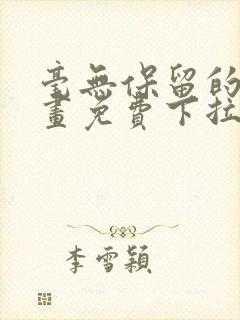 毫無保留的
畫免費下拉
李雪穎